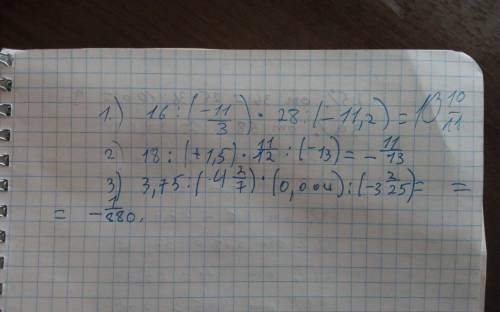 1.) 16 : (-11/3) · 28 : (-11,2) = 10 10/11
2) 18 : (+1,5) · 11/12 : (-13) = - 11/13
3) 3,75 : (-4 2/7) · (0,004) : (-3 2/25) = =
= - 1/880.